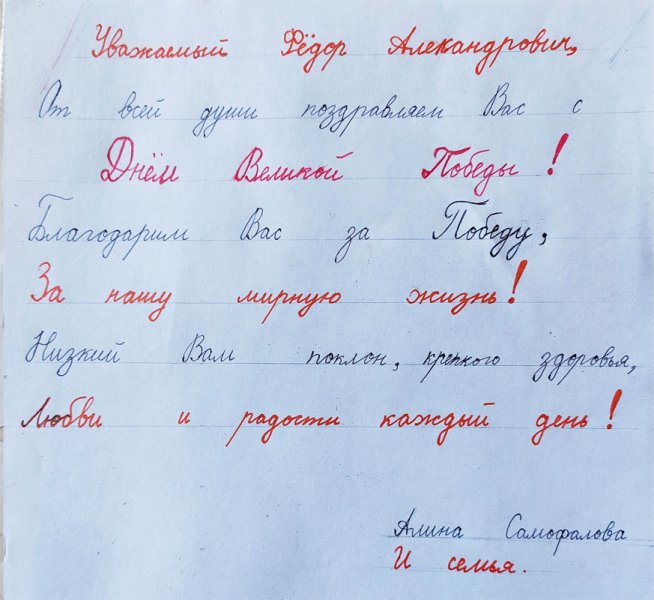 Уважаемый Фёдор Александрович,
От всей души поздравляем Вас с
Днём Великой Победы!
Благодарим Вас за Победу,
За нашу мирную жизнь!
Низкий Вам поклон, крепкого здоровья,
Любви и радости каждый день!
Алина Самофалова
И семья.